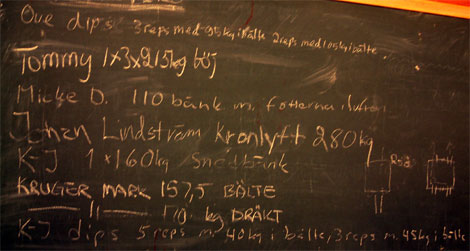 Ove dips 3 reps med 95kg i bälte 2 reps med 105kg i bälte
Tommy 1x3x215kg böj
Micke D. 110 bänk m. fötterna i luften
Johan Lindström kronlyft 280kg
K-J 1x160kg snedbänk
KRUGER MARK 157,5 BÄLTE
—— 11 —— 170 kg DRÄKT
K-J. dips 5 reps m. 40kg i bälte, 3 reps m. 45kg i bälte